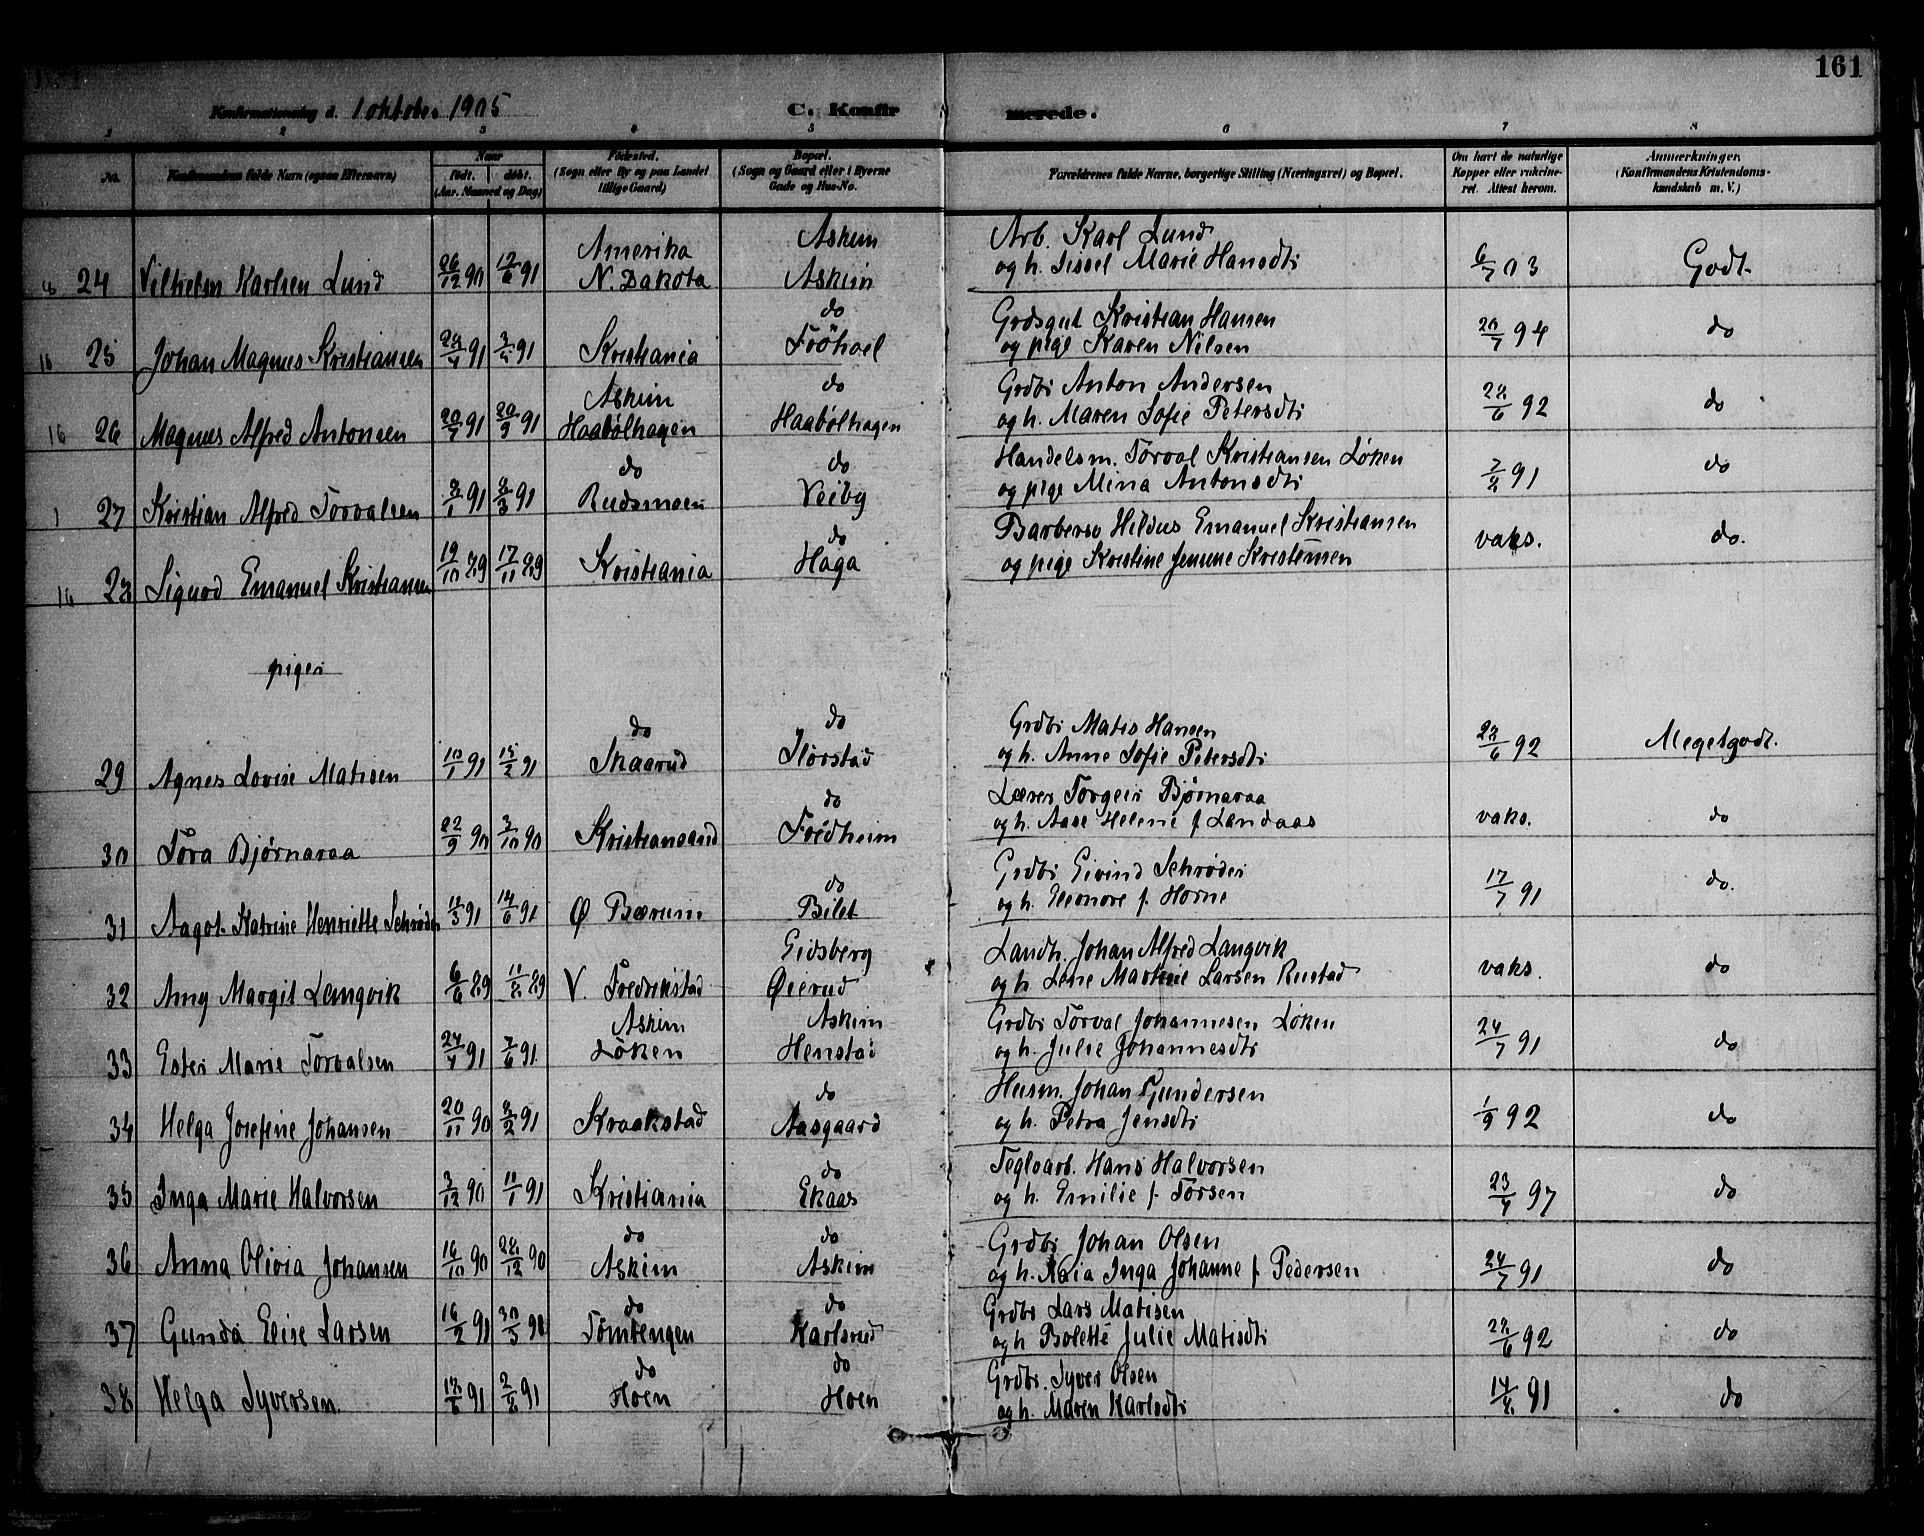 161
Konfirmationsdag d. 1 oktober 1905 C. Konfirmerede.
1 2 3 4 5 6 7 8
No. Konfirmandens fulde Navn (ogsaa Efternavn) Naar født. døbt. (Aar, Maaned og Dag) Fødested. (Sogn eller By og paa Landet tillige Gaard) Bopæl. (Sogn og Gaard eller i Byerne Gade og Hus-No. Forældrenes fulde Navne, borgerlige Stilling (Næringsvei) og Bopæl. Om havt de naturlige Kopper eller vakcineret. Attest herom. Anmærkninger. (Konfirmandens Kristendomskundskab m. V.)
Amerika Askim Arb. Karl Lund
8 24 Vilhelm Karlsen Lund 26/12 90 12/6 91 N. Dakota Askim og h. Sissel Marie Hansdtr 6/7 03 Godt.
do Grdsgut Kristian Hansen
16 25 Johan Magnus Kristiansen 91 91 Kristiania Fröhoel og pige Karen Nilsen 20/7 94 do
Askim do Grdbr Anton Andersen
16 26 Magnus Alfred Antonsen 20/7 91 20/9 91 Haabølhagen Haabølhagen og h. Maren Sofie Petersdtr 28/6 92 do
do do Handelsm. Torval Kristiansen Løken
1 27 Kristian Alfred Torvalsen 8/1 91 8/3 91 Rudsmoen Veiby og pige Mina Antonsdtr 7/8 91 do
do Barbersv Hildus Emanuel Kristiansen
16 28 Sigurd Emanuel Kristiansen 19/10 89 17/11 89 Kristiania Haga og pige Kristine Jemine Kristensen vaks. do.
piger
do do Grdbr Matis Hansen
29 Agnes Lovise Matisen 10/1 91 15/2 91 Skaarud Ilørstad og h. Anne Sofie Petersdtr 28/6 92 Megetgodt.
do Lærer Torgeir Bjørnaraa
30 Tora Bjørnaraa 22/9 90 3/10 90 Kristianssand Fredheim og h. Aase Helene f. Landaas vaks. do
do Grdbr Eivind Schrøder
31 Aagot Katrine Henriette Schrøder 11/3 91 14/6 91 Ø Bærum Bilet og h. Eleonore f. Horne 17/7 91 do.
Eidsberg Landh. Johan Alfred Langvik
32 Amy Margit Langvik 6/6 89 11/8 89 V. Fredrikstad Øierud og h Lene Martine Larsen Rustad vaks. do
Askim Askim Grdbr Torval Johannesen Løken
33 Ester Marie Torvalsen 24/4 91 7/6 91 Løken Henstad og h. Julie Johannesdtr 24/7 91 do
do Husm. Johan Gundersen
34 Helga Josefine Johansen 20/11 90 8/2 91 Kraakstad Aasgaard og h. Petra Jensdtr 1/9 92 do
do Tegloarb. Hans Halvorsen
35 Inga Marie Halvorsen 3/12 90 11/1 91 Kristiania Ekaas og h. Emilie f. Torsen 23/4 97 do
do do Grdbr Johan Olsen
36 Anna Olivia Johansen 16/10 90 28/12 90 Askim Askim og h. Inga Johanne f. Pedersen 24/7 91 do
do do Grdbr Lars Matisen
37 Gunda Elise Larsen 16/2 91 30/3 90 Tomtengen Karlsrud og h Bolette Julie Matisdtr 28/6 92 do
do do Grdbr. Syver Olsen
38 Helga Syversen. 91 2/8 91 Hoen Hoen og h. Maren Karlsdtr 14/8 91 do